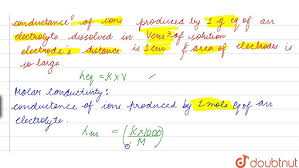 conductance of ions produced by 1 g eq of an
electrolyte dissolved in Vcm³ of solution
electrode's distance is 1 cm & area of electrodes is
so large.
λeq = K×V
Molar Conductivity:
conductance of ions produced by 1 mole eq of an
electrolyte..
λm = (K×1000/M)
doubtnut